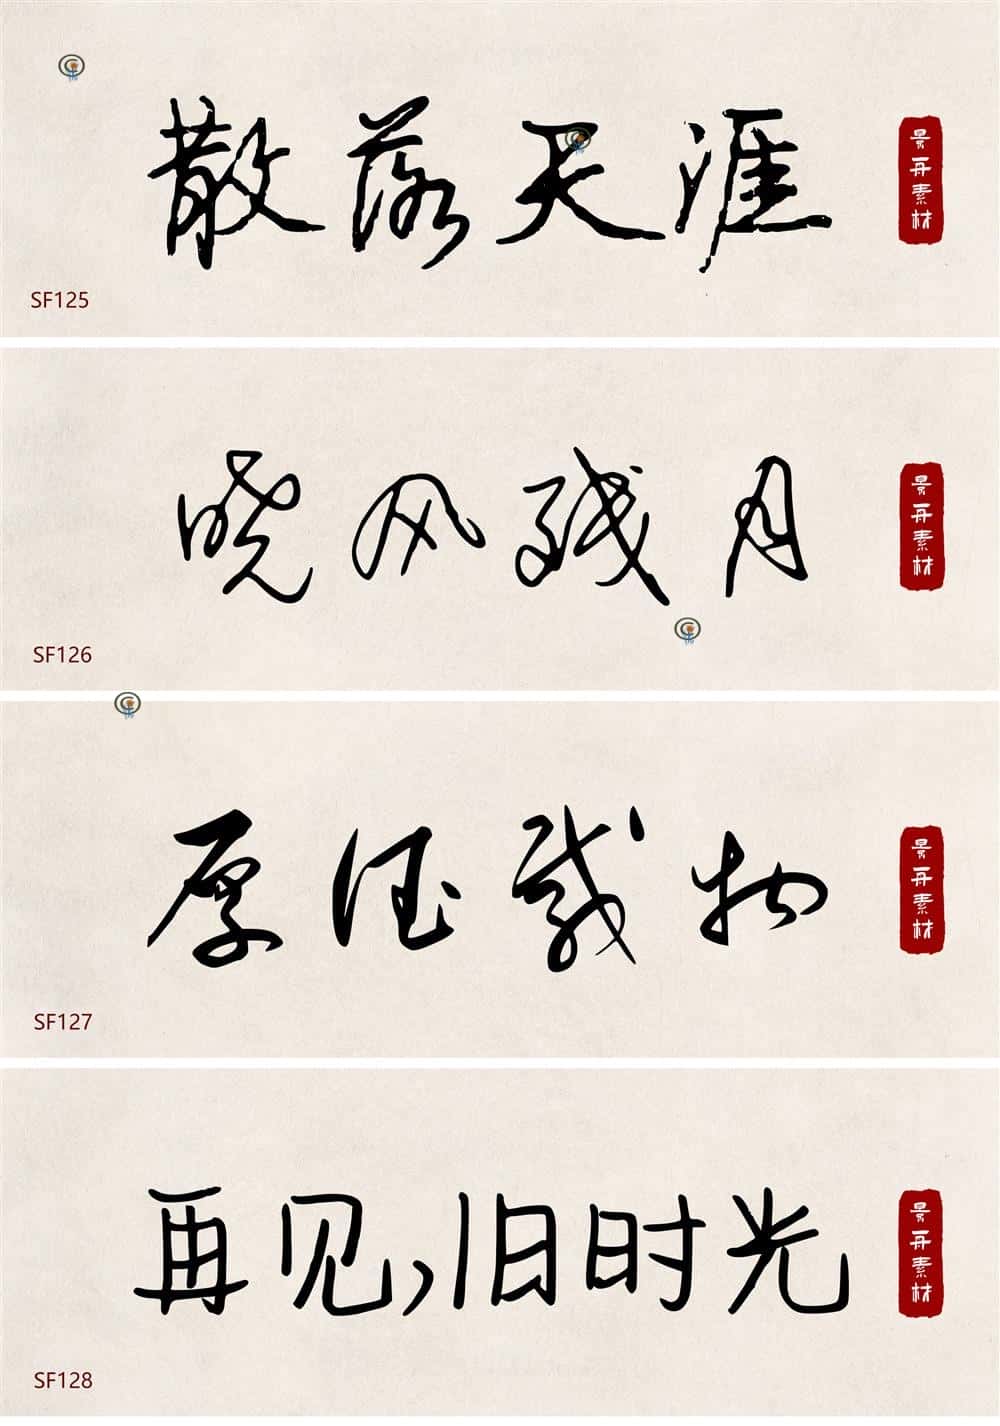 散落天涯
景舟素材
SF125
晓风残月
景舟素材
SF126
厚德载物
景舟素材
SF127
再见,旧时光
景舟素材
SF128